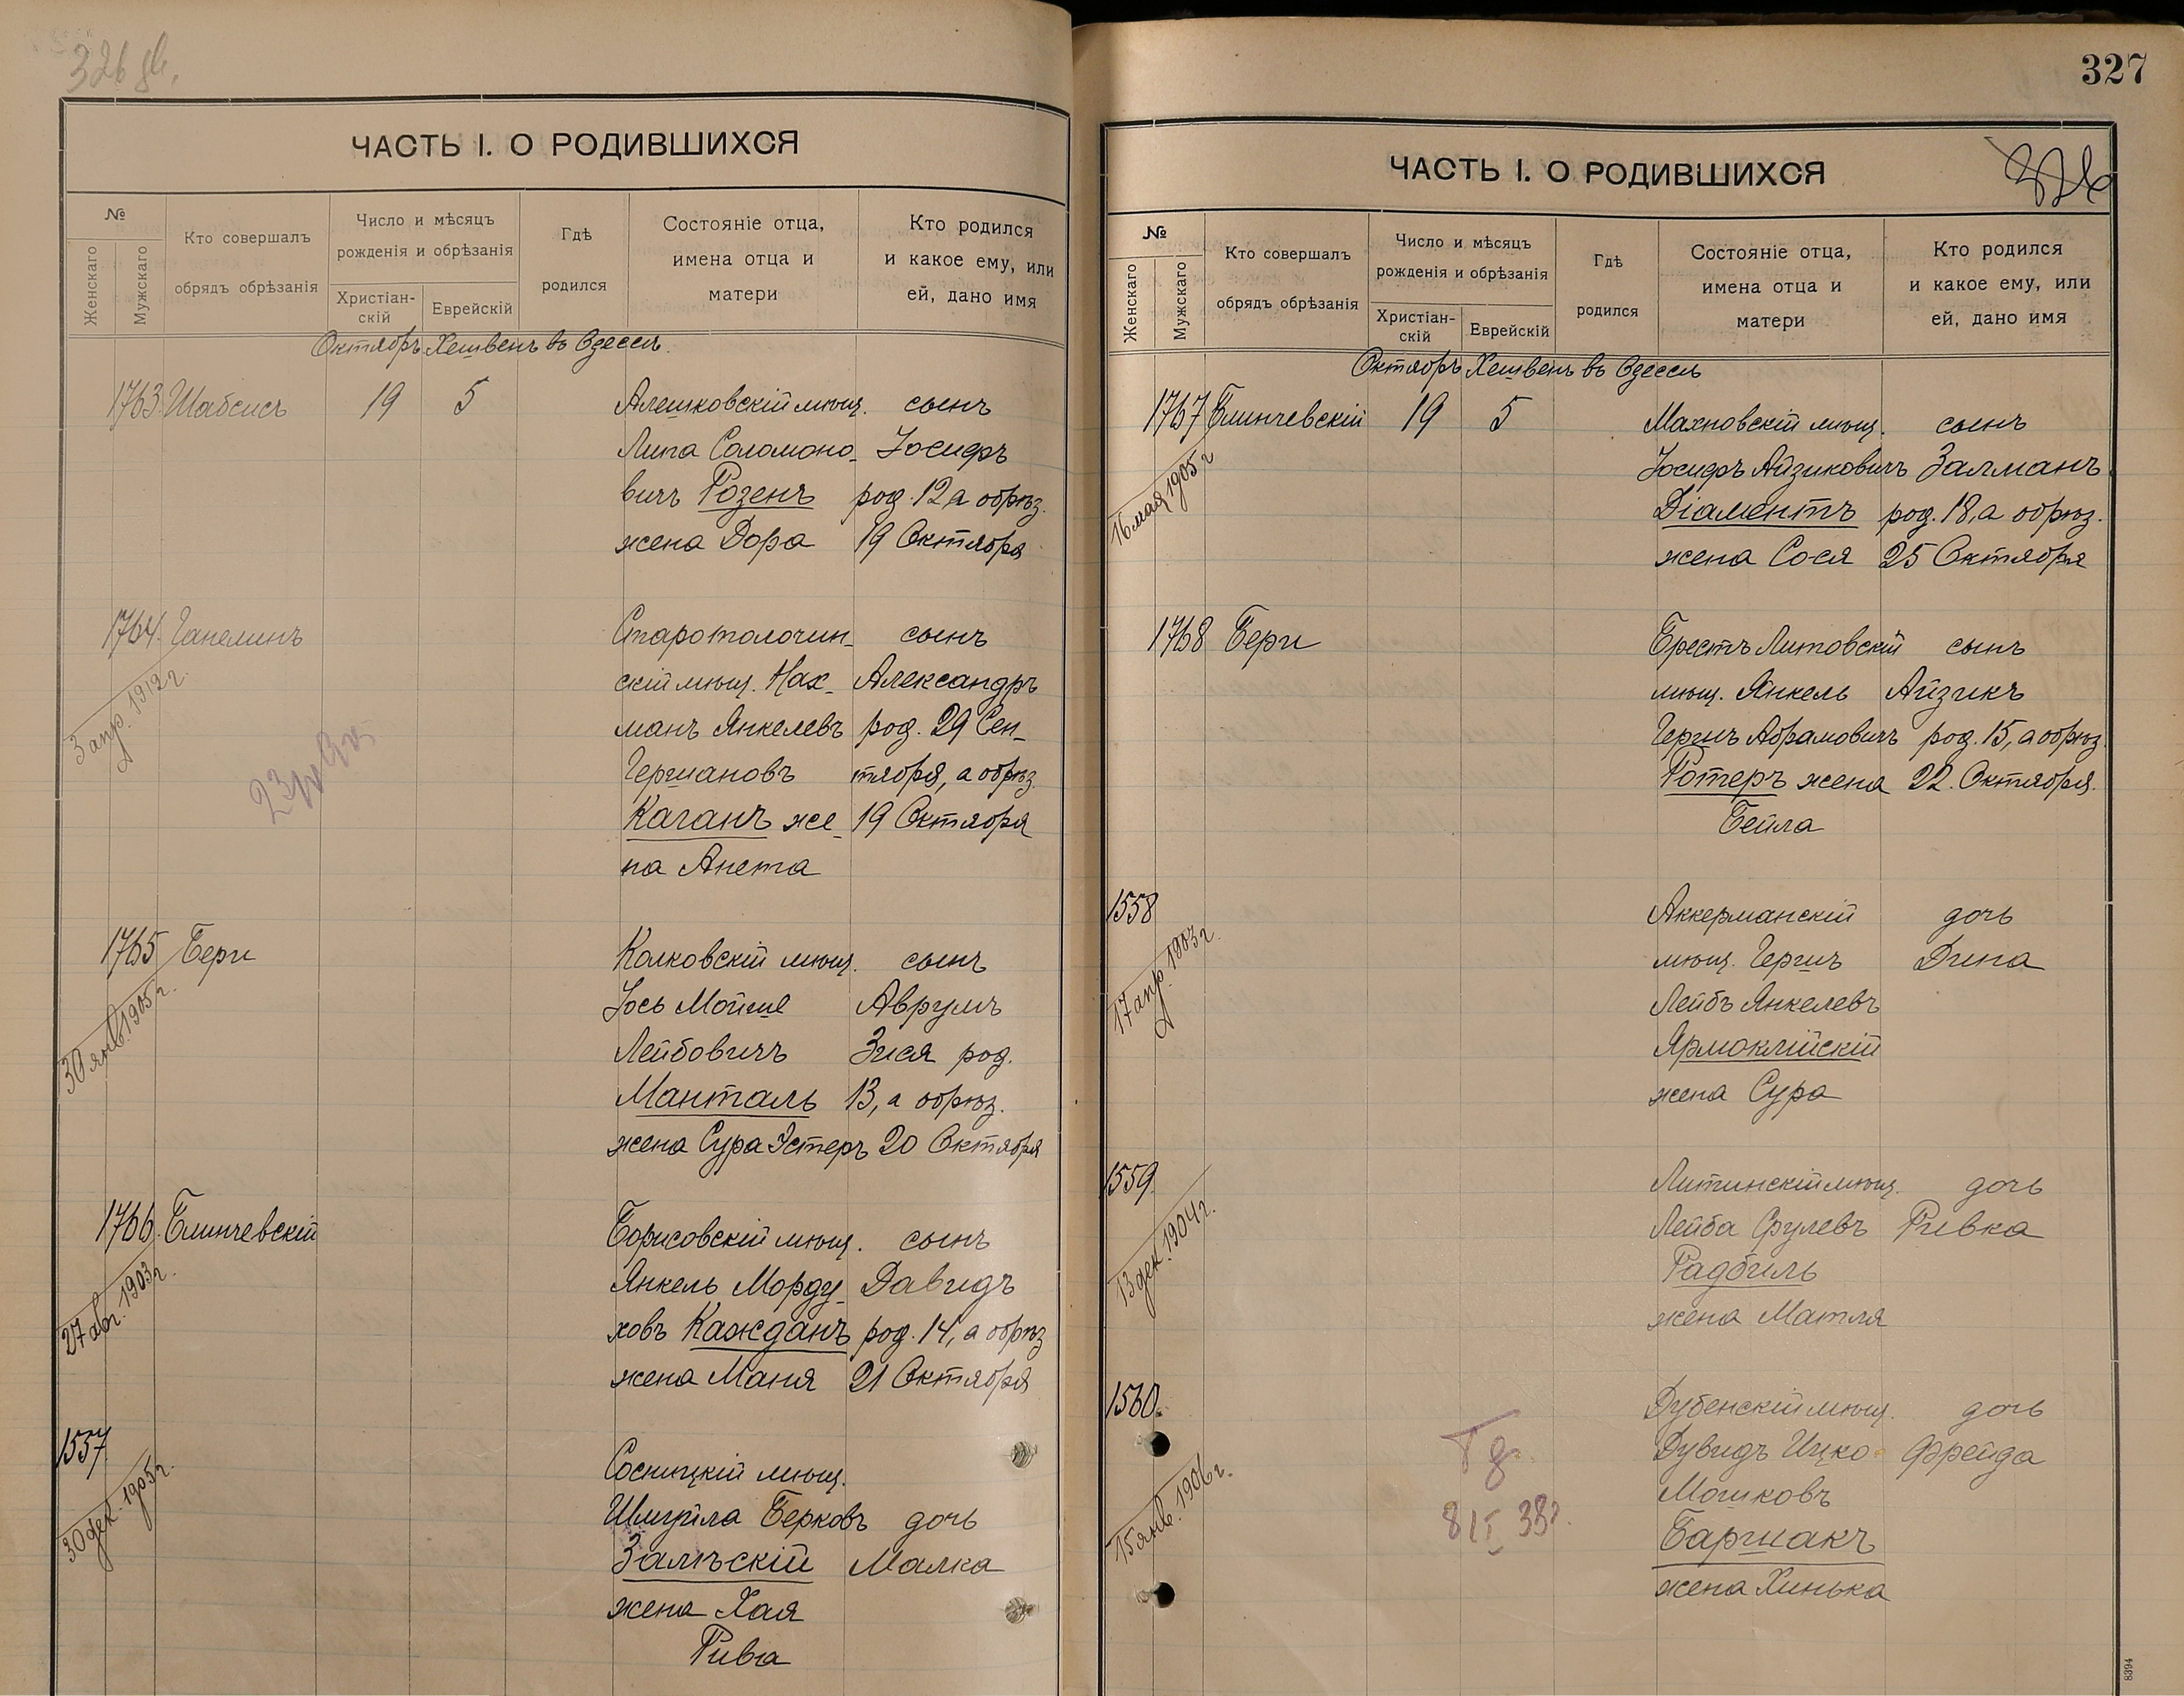 326 об.
ЧАСТЬ I. О РОДИВШИХСЯ
№
Женскаго
Мужскаго
Кто совершалъ
обрядъ обрѣзанія
Число и мѣсяцъ
рожденія и обрѣзанія
Христіан-
скій
Еврейскій
Гдѣ
родился
Состояніе отца,
имена отца и
матери
Кто родился
и какое ему, или
ей, дано имя
Октябрь Хешвенъ въ Одессѣ.
1763. Шабсисъ 19 5 Алешковскій мѣщ. сынъ
Липа Соломоно- Іосифъ
вичъ Розенъ род. 12 а обрѣз.
жена Дора 19 Октября
1764. Ганелинъ Старотолочин- сынъ
3 апр. 1912 г. скій мѣщ. Нах- Александръ
манъ Янкелевъ род. 29 Сен-
Гершановъ тября, а обрѣз.
Каганъ же- 19 Октября
на Анета
1765 Бери Колковскій мѣщ. сынъ
30 янв. 1905 г. Іось Мойше Аврумъ
Лейбовичъ Зися род.
Манталь 13, а обрѣз.
жена Сура Эстеръ 20 Октября
1766. Блинчевскій Борисовскій мѣщ. сынъ
27 авг. 1903 г. Янкель Морду- Давидъ
ховъ Кажданъ род. 14, а обрѣз
жена Маня 21 Октября
1557 Сосницкій мѣщ.
30 дек. 1905 г. Шмуйла Берковъ дочь
Залѣскій Малка
жена Хая
Рива
327
ЧАСТЬ I. О РОДИВШИХСЯ
№
Женскаго
Мужскаго
Кто совершалъ
обрядъ обрѣзанія
Число и мѣсяцъ
рожденія и обрѣзанія
Христіан-
скій
Еврейскій
Гдѣ
родился
Состояніе отца,
имена отца и
матери
Кто родился
и какое ему, или
ей, дано имя
Октябрь Хешвенъ въ Одессѣ
1767 Блинчевскій 19 5 Махновскій мѣщ. сынъ
16 мая 1905 г Іосифъ Айзиковичъ Залманъ
Діаментъ род. 18, а обрѣз.
жена Сося 25 Октября
1768 Бери Брестъ Литовскій сынъ
мѣщ. Янкель Айзикъ
Гершъ Абрамовичъ род. 15, а обрѣз.
Ротеръ жена 22. Октября.
Бейла
1558 Аккерманскій дочь
17 апр 1903 г. мѣщ. Гершъ Дина
Лейбъ Янкелевъ
Ярмоклійскій
жена Сура
1559. Литинскій мѣщ. дочь
13 дек. 1904 г. Лейба Срулевъ Ривка
Радбиль
жена Матля
1560. Дубенскій мѣщ. дочь
15 янв. 1906 г. Дувидъ Ицко Фрейда
Мошковъ
8 IX 38 г. Баршакъ
жена Хинька
8394